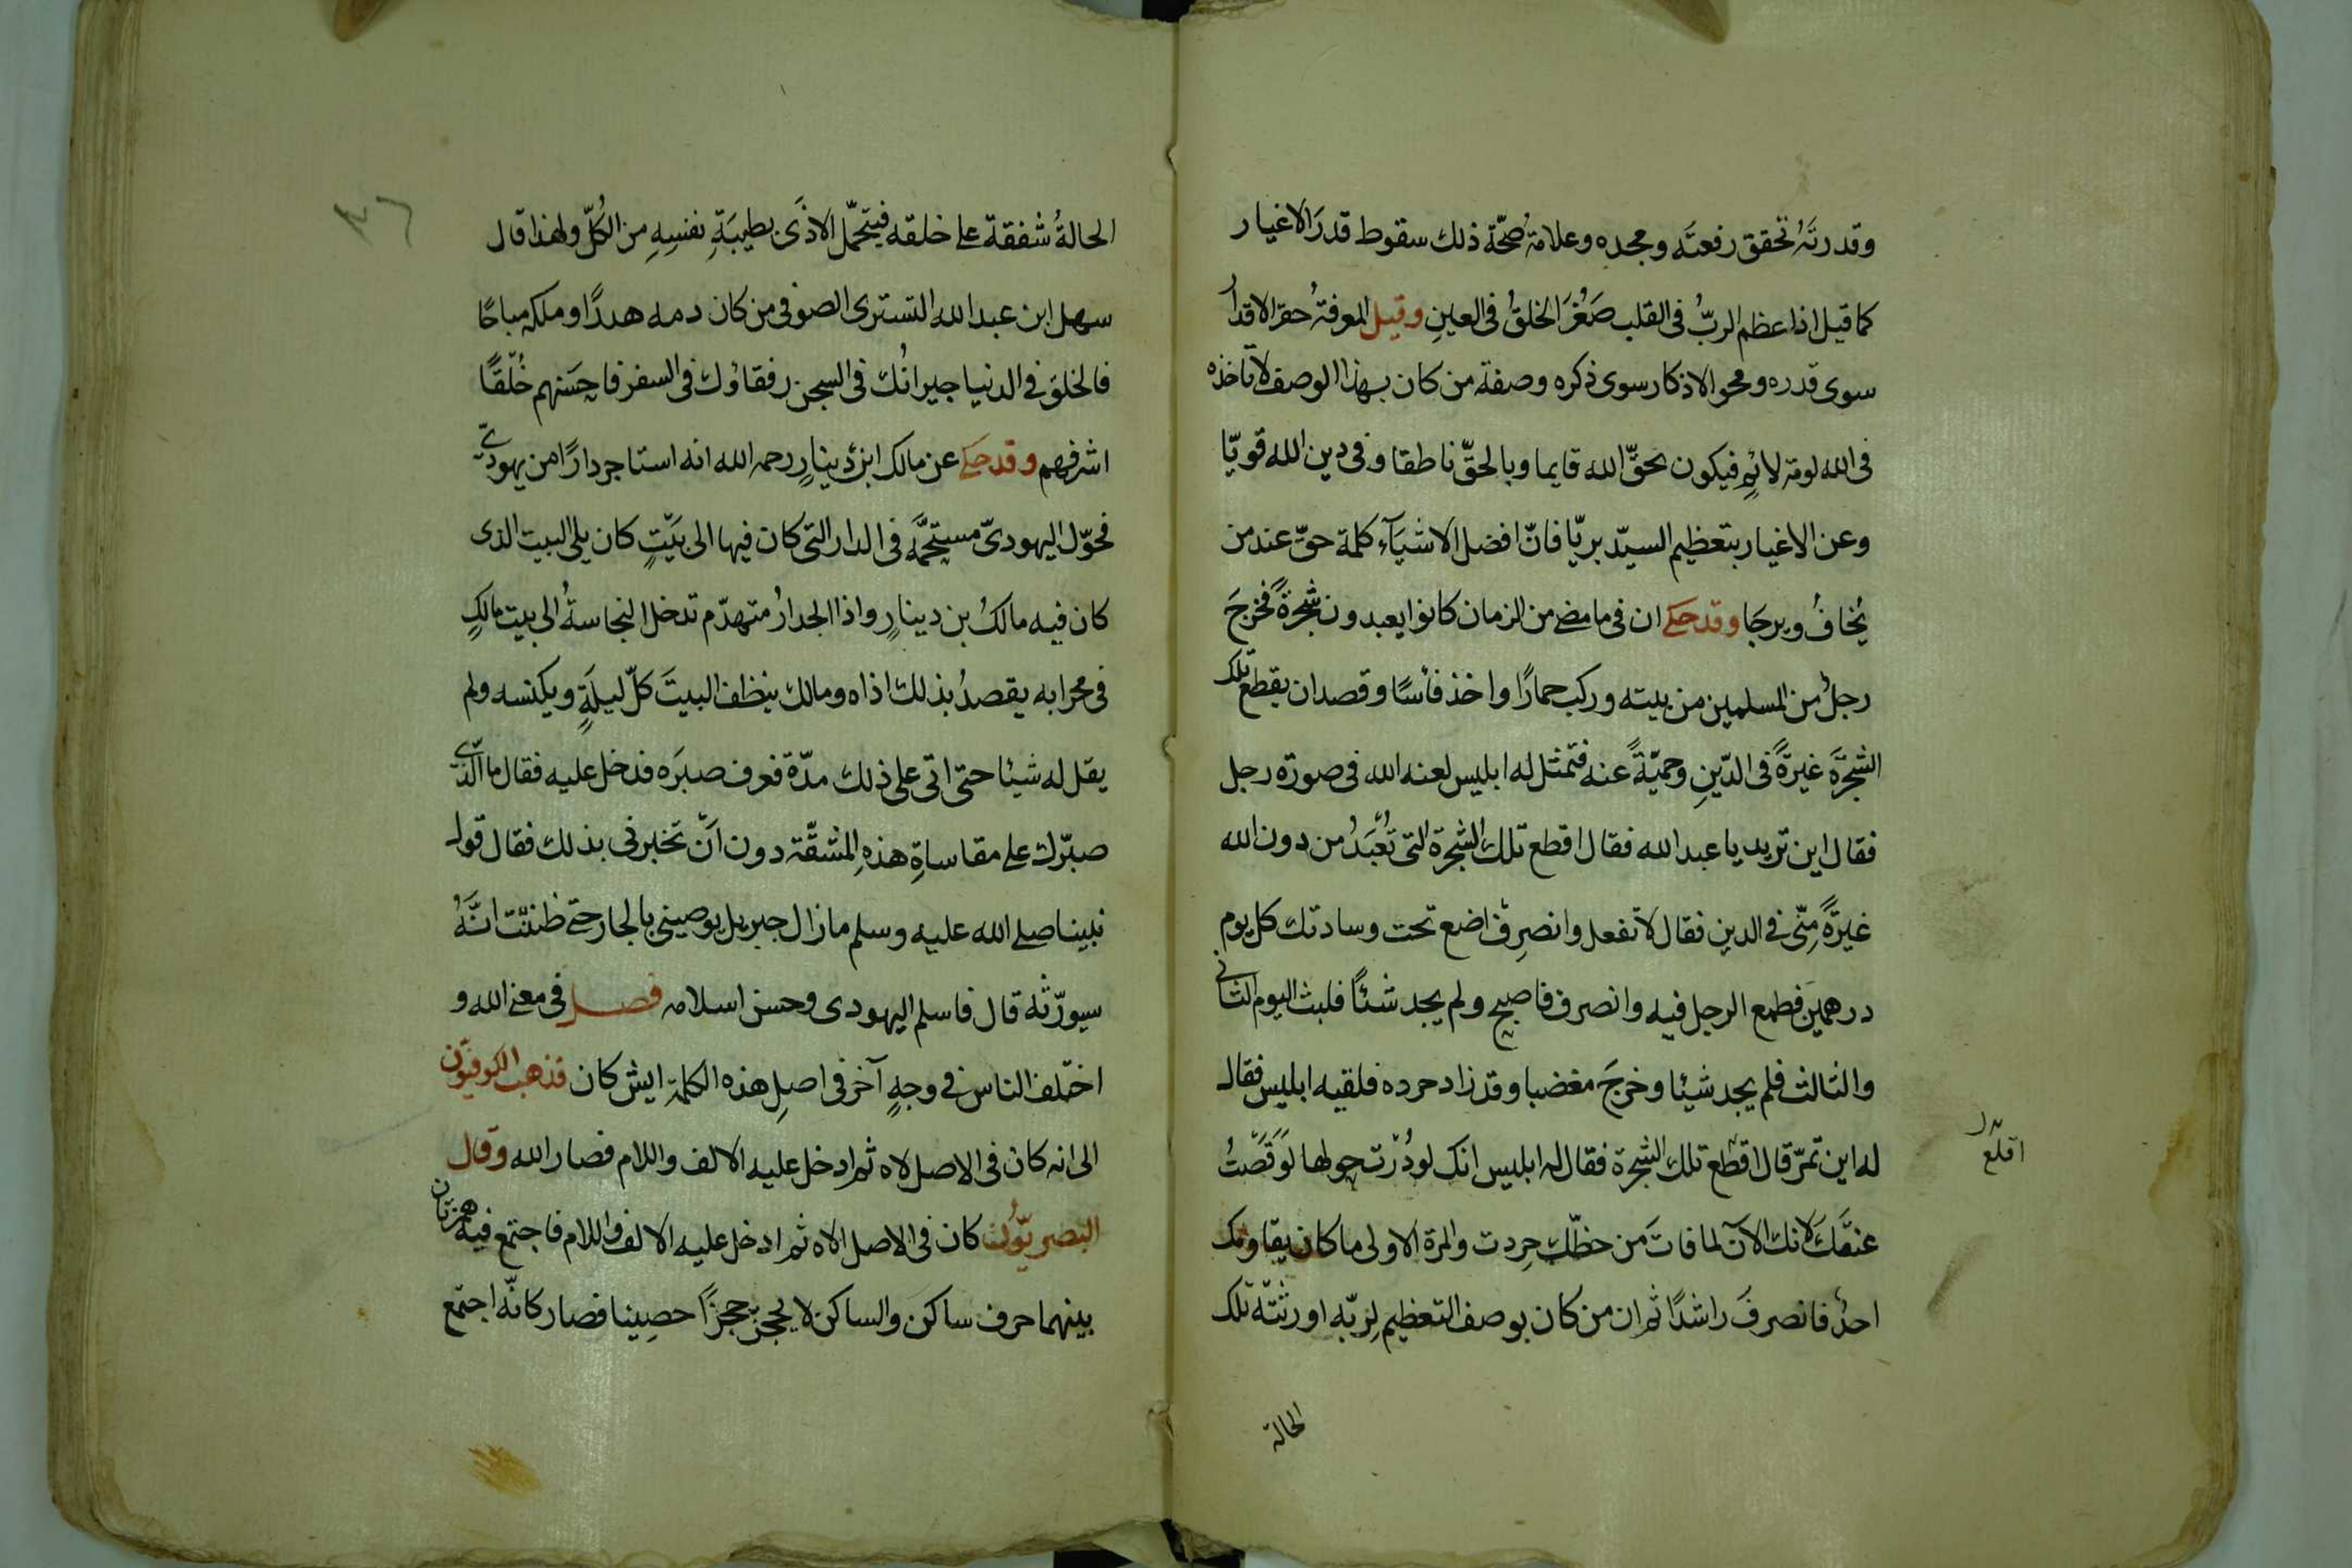 وقدرتَهُ تحقق رفعتَه ومجده وعلامةُ صُحّة ذلك سقوط قدرَ الاغيار
كما قيل اذا عظم الربُّ فى القلب صَغُرَ الخلقُ فى العينِ وقيل المعرفةُ حقر الاقدار
سوى قدره ومحو الاذكار سوى ذكره وصفة من كان بهذا الوصف لا تأخذه
فى الله لومة لائمٍ فيكون بحقّ الله قايما وبالحقّ ناطقا وفى دين الله قويّا
وعن الاغيار بتعظيم السيّد بريّا فانّ افضل الاشيَآء كلمة حقّ عند من
يُخافُ ويرجَا وقد حكى ان فى ما مضى من الزمان كانوا يعبدون شجرةً فخرجَ
رجلٌ من المسلمين من بيته وركب حمارًا واخذ فأسًا وقصد ان يقطع تلك
الشجرَةَ غيرَةً فى الدّينِ وحميّةً عنه فتمثل له ابليس لعنه الله فى صورة رجل
فقال اين تريد يا عبد الله فقال اقطع تلك الشجرة التى تُعْبَدُ من دون الله
غيرَةً مِنّى فى الدين فقال لا تفعل وانصرِف اضع تحت وسادتك كل يوم
درهمين فطمع الرجل فيه وانصرف فاصبح ولم يجد شئًا فلبث اليوم الثانى
والثالث فلم يجد شيئا وخرجَ مغضبا وقد زاد حرده فلقيه ابليس فقال
له اين تمرّ قال اقطع تلك الشجرة فقال له ابليس انك لو دُرْت حولها لَوَقَصْتُ
اقلع
عنقَكَ لانك الآن لما فاتَ من حظّك حرِدت والمرة الاولى ما كان يقاومك
احدٌ فانصرفَ راشدًا ثم ان من كان بوصف التعظيم لِربّهِ اورثتْه تلك
الحالة
الحالةُ شفقة على خلقه فيتحمّل الاذَى بطيبَةِ نفسِهِ من الكُلّ ولهذا قال
سهل ابن عبد الله التسترى الصوفى من كان دمه هددًا وملكه مباحًا
فالخلق فى الدنيا جيرانُك فى السجن رفقاؤك فى السفر فاحسَنهم خُلقًا
اشرفهم وقد حكى عن مالك ابن دينارٍ رحمه الله انه استاجر دارًا من يهودىّ
فحوّل اليهودىّ مستحمَّه فى الدار التى كان فيها الى بَيْتٍ كان يلى البيت الذى
كان فيه مالكُ بن دينارٍ واذا الجدارُ متهدّم تدخل النجاسةُ الى بيت مالكٍ
فى محرابه يقصدُ بذلك اذاه ومالك ينظف البيتَ كلّ ليلَةٍ ويكنسه ولم
يقل له شيئا حتى اتى على ذلك مدّة فعرف صبرَه فدخل عليه فقال ما الّذى
صبّرك على مقاساةِ هذهِ المشقّة دون اَنْ تخبرنى بذلك فقال قول
نبينا صلى الله عليه وسلم ما زال جبريل يوصينى بالجار حتى ظننتُ انَّهُ
سيورّثه قال فاسلم اليهودى وحسن اسلامه فصل فى معنى الله و
اختلف الناس فى وجهٍ آخر فى اصلِ هذه الكلمة ايش كان فذهب الكوفيّون
الى انه كان فى الاصل لاه ثم ادخل عليه الالف واللام فصار الله وقال
البصريّون كان فى الاصل الاه ثم ادخل عليه الالف واللام فاجتمع فيه همزتان
بينهما حرف ساكن والساكن لا يحجز حجزًا حصينا فصار كانّه اجتمع